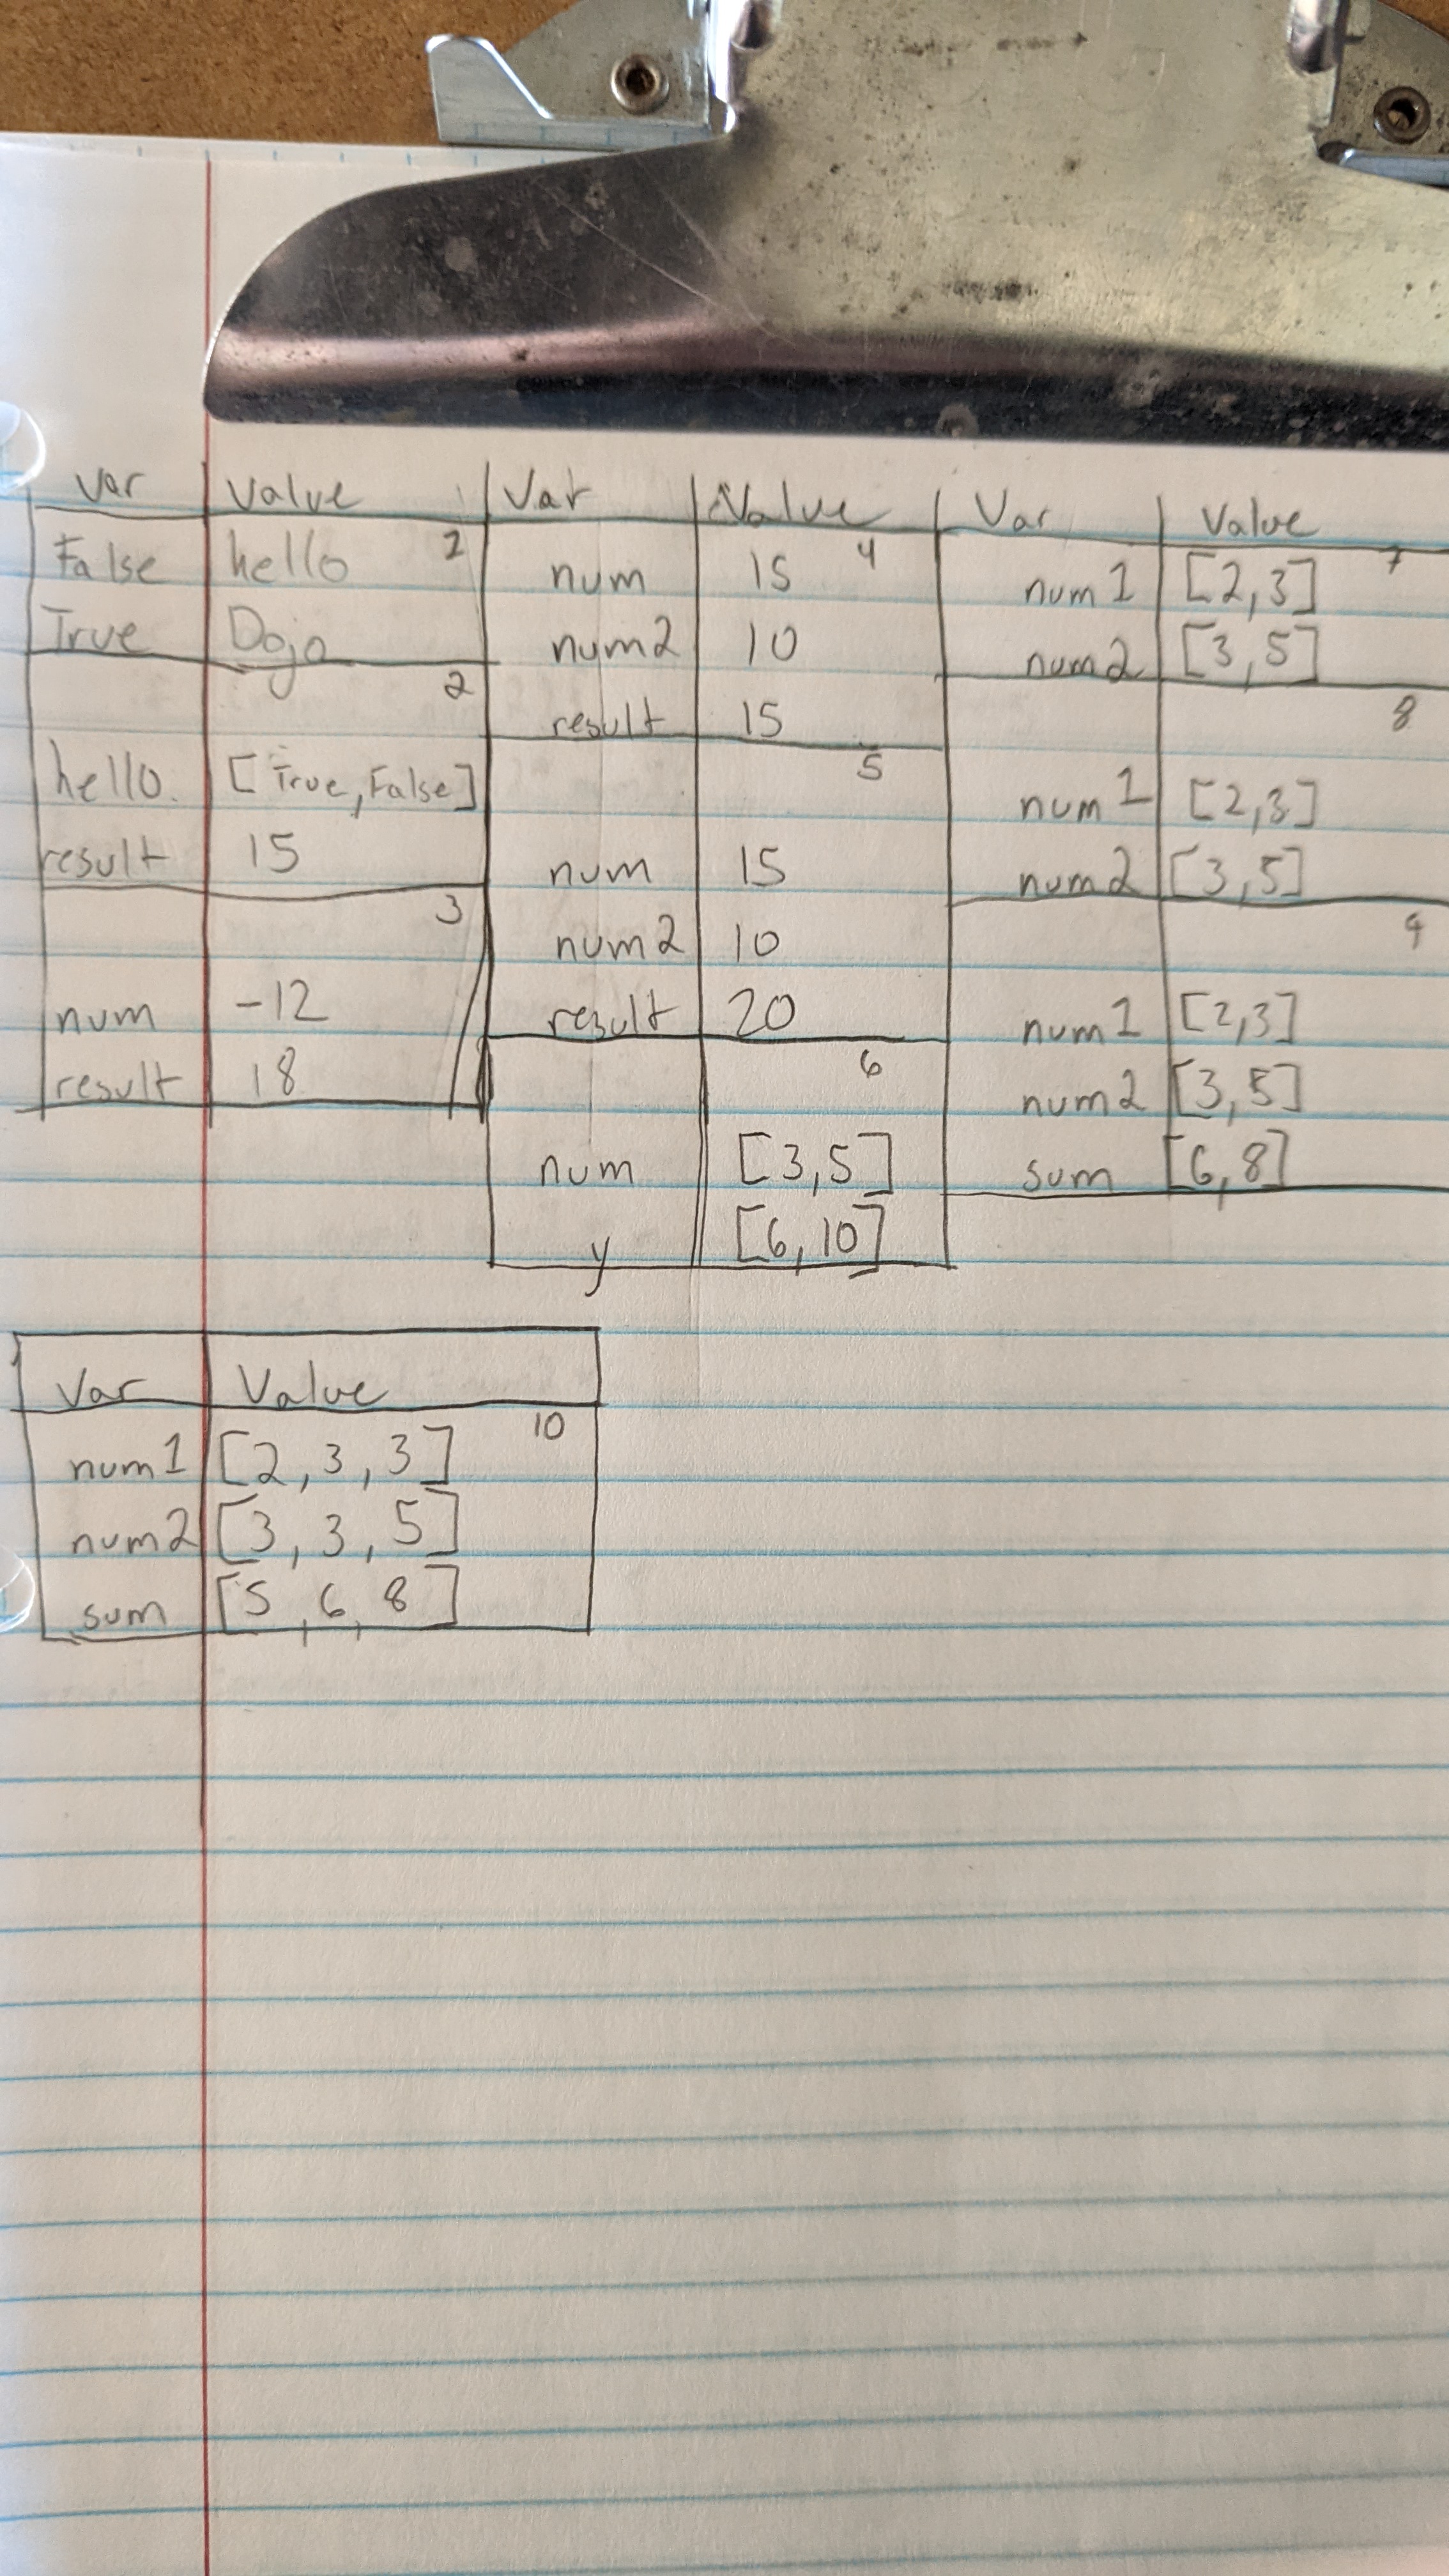 Var Value
1
False hello
True Dojo
2
hello. [True, False]
result 15
3
num -12
result 18
Var Value
4
num 15
num2 10
result 15
5
num 15
num2 10
result 20
6
num [3,5]
y [6,10]
Var Value
7
num1 [2,3]
num2 [3,5]
8
num1 [2,3]
num2 [3,5]
9
num1 [2,3]
num2 [3,5]
sum [6,8]
Var Value
10
num1 [2,3,3]
num2 [3,3,5]
sum [5,6,8]